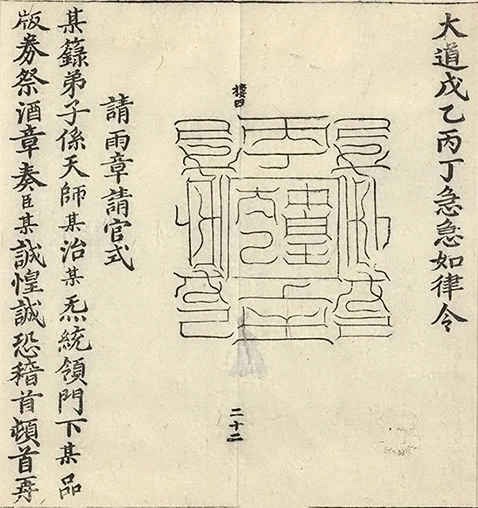 大道戊乙丙丁急急如律令
樓四
二十二
請雨章請官式
某籙弟子係天師某治某炁統領門下某品
版券祭酒章奏臣某誠惶誠恐稽首頓首再